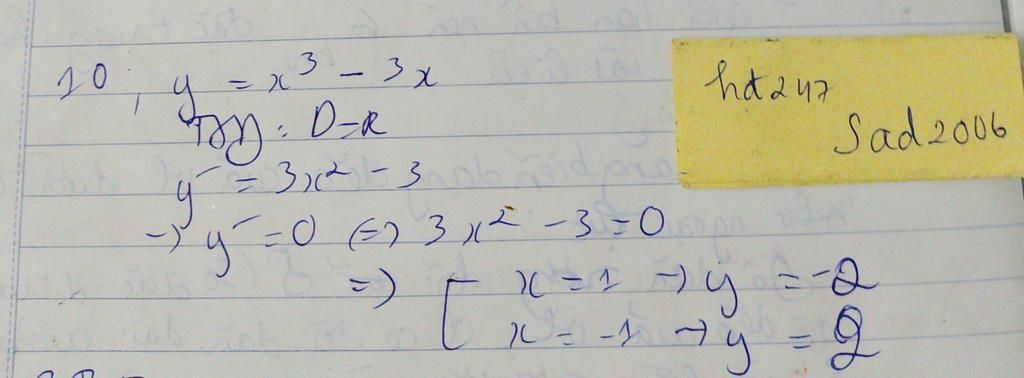 10, y = x³ - 3x
TXĐ: D=R
y' = 3x² - 3
→ y' = 0 (=> 3x² - 3 = 0
=> [ x = 1 → y = -2
x = -1 → y = 2
hd247
Sad2006